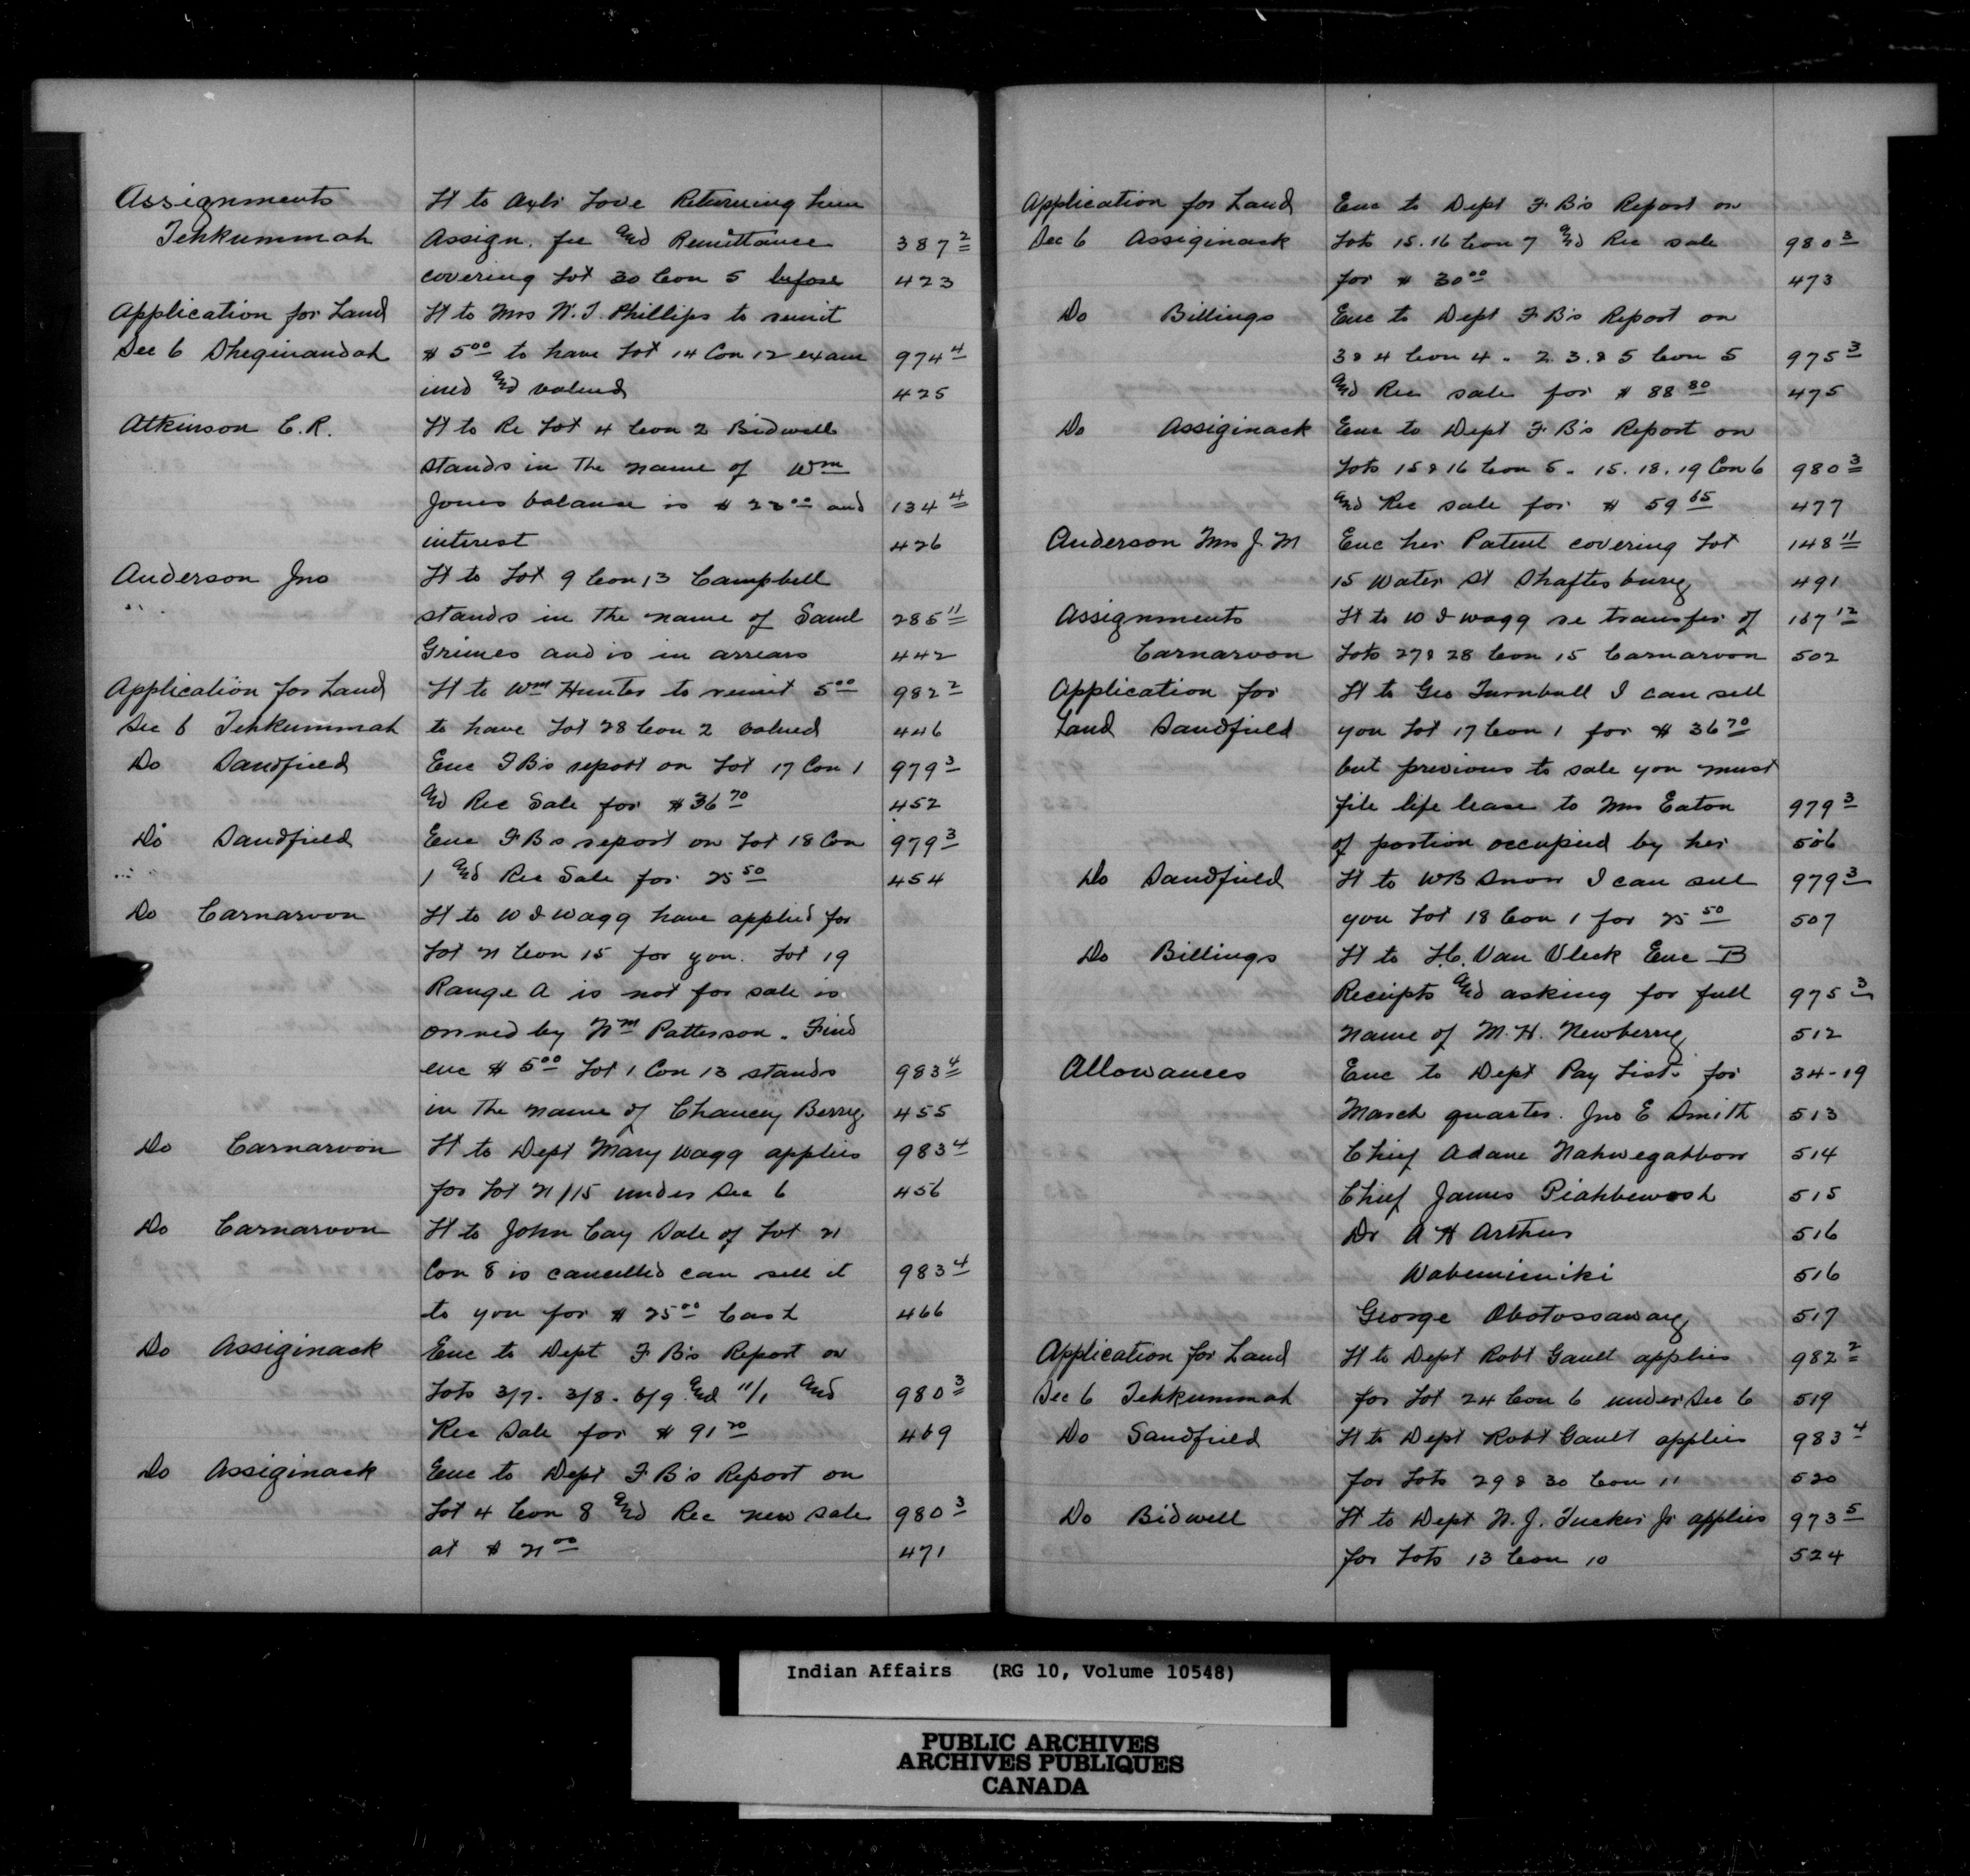 Assignments Lt to Axls Love Returning him
Tehkummah Assign. fee and Remittance 387 2
covering Lot 30 Con 5 before 423
Application for Land Lt to Mrs W. J. Phillips to remit
Sec 6 Sheguiandah $ 5 00 to have Lot 14 Con 12 exam 974 4
ined and valued 425
Atkinson C. R. Lt to Re Lot 4 Con 2 Bidwell
stands in the name of Wm
Jones balance is $ 23 00 and 134 4
interest 426
Anderson Jno Lt to Lot 9 Con 13 Campbell
" stands in the name of Saml 285 11
Grimes and is in arrears 442
Application for Land Lt to Wm Hunter to remit 5 00 982 2
Sec 6 Tehkummah to have Lot 28 Con 2 valued 446
Do Sandfield Enc FB's report on Lot 17 Con 1 979 3
and Rec Sale for $ 36 70 452
Do Sandfield Enc FB's report on Lot 18 Con 979 3
1 and Rec Sale for 25 50 454
Do Carnarvon Lt to W I Wagg have applied for
Lot 21 Con 15 for you. Lot 19
Range A is not for sale is
owned by Wm Patterson. Find
enc $ 5 00 Lot 1 Con 13 stands 983 4
in the name of Chancey Berry 455
Do Carnarvon Lt to Dept Mary Wagg applies 983 4
for Lot 21/15 under Sec 6 456
Do Carnarvon Lt to John Cay Sale of Lot 21
Con 8 is cancelled can sell it 983 4
to you for $ 25 00 Cash 466
Do Assiginack Enc to Dept F B's Report on
Lots 3/7. 3/8. 6/9 and 11/1 and 980 3
Rec Sale for $ 91 20 469
Do Assiginack Enc to Dept F B's Report on
Lot 4 Con 8 and Rec new sale 980 3
at $ 21 00 471
Application for Land Enc to Dept F B's Report on
Sec 6 Assiginack Lots 15.16 Con 7 and Rec sale 980 3
for $ 30 00 473
Do Billings Enc to Dept F B's Report on
3 & 4 Con 4. 2. 3. & 5 Con 5 975 3
and Rec sale for $ 88 80 475
Do Assiginack Enc to Dept F B's Report on
Lots 15 & 16 Con 5. 15. 18. 19 Con 6 980 3
and Rec sale for $ 59 65 477
Anderson Mrs J. M Enc her Patent covering Lot 148 11
15 Water St Shaftesbury 491
Assignments Lt to W I Wagg re transfer of 167 12
Carnarvon Lots 27 & 28 Con 15 Carnarvon 502
Application for Lt to Geo Turnbull I can sell
Land Sandfield you Lot 17 Con 1 for $ 36 70
but previous to sale you must
file life lease to Mrs Eaton 979 3
of portion occupied by her 506
Do Sandfield Lt to WB Snow I can sell 979 3
you Lot 18 Con 1 for 25 50 507
Do Billings Lt to H.C. Van Vleck Enc B
Receipts and asking for full 975 3
name of M. H. Newberry 512
Allowances Enc to Dept Pay Lists for 34-19
March quarter. Jno E Smith 513
Chief Adane Nahwegahbow 514
Chief James Piahbewosh 515
Dr A H Arthur 516
Wabemimiki 516
George Obotossaway 517
Application for Land Lt to Dept Robt Gault applies 982 2
Sec 6 Tehkummah for Lot 24 Con 6 under Sec 6 519
Do Sandfield Lt to Dept Robt Gault applies 983 4
for Lots 29 & 30 Con 11 520
Do Bidwell Lt to Dept N. J. Tucker Jr applies 973 5
for Lots 13 Con 10 524
Indian Affairs (RG 10, Volume 10548)
PUBLIC ARCHIVES
ARCHIVES PUBLIQUES
CANADA